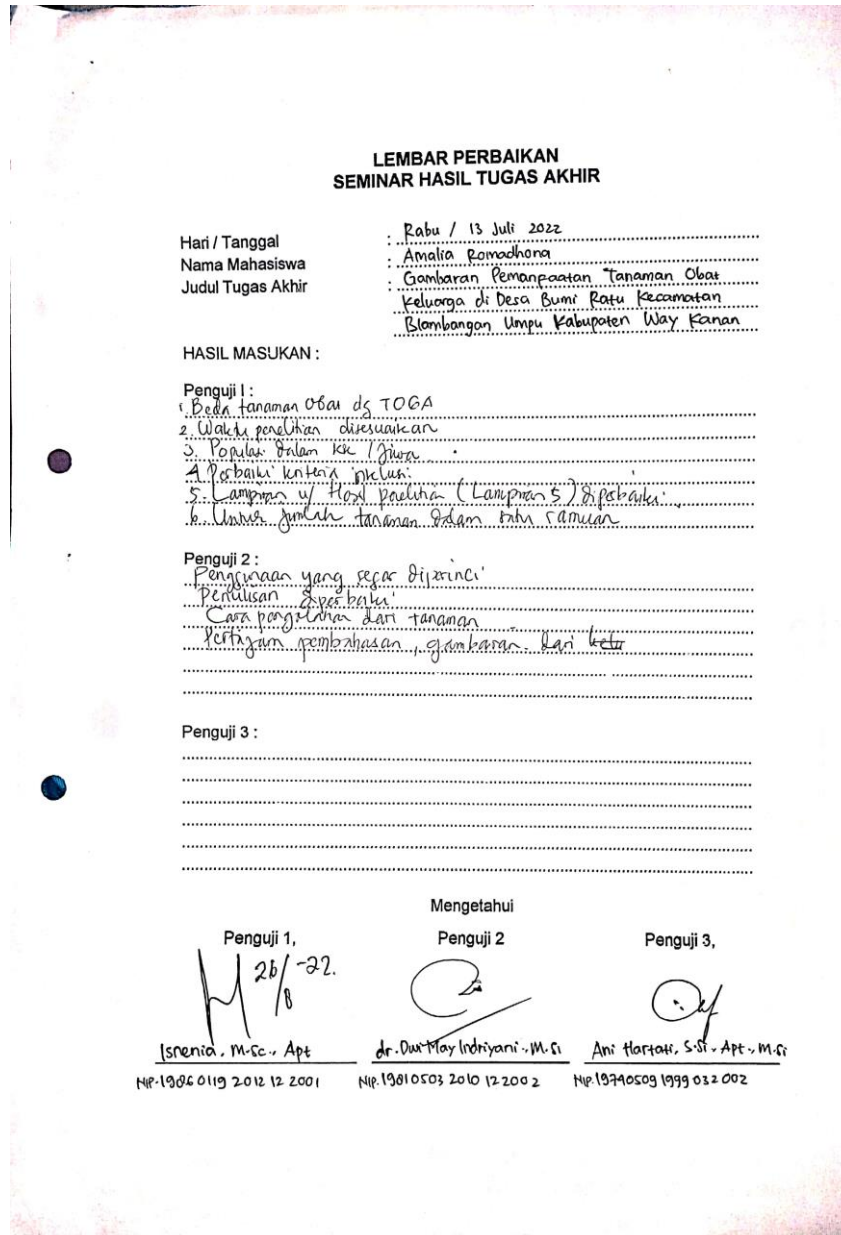 LEMBAR PERBAIKAN
SEMINAR HASIL TUGAS AKHIR
Hari / Tanggal : Rabu / 13 Juli 2022
Nama Mahasiswa : Amalia Romadhona
Judul Tugas Akhir : Gambaran Pemanpaatan Tanaman Obat
Keluarga di Desa Bumi Ratu Kecamatan
Blambangan Umpu Kabupaten Way Kanan
HASIL MASUKAN :
Penguji I :
1. Beda tanaman Obat dg TOGA
2. Waktu penelitian disesuaikan
3. Populasi dalam KK / Jiwa
4. Perbaiki kriteria inklusi
5. Lampiran u/ Hasil penelitian (Lampiran 5) diperbaiki
6. jumlah tanaman dalam satu ramuan
Penguji 2 :
Penggunaan yang segar diperinci
Penulisan diperbaiki
Cara pengolahan dari tanaman
Pertajam pembahasan, gambaran dari
Penguji 3 :
Mengetahui
Penguji 1, Penguji 2 Penguji 3,
26/8 -22.
Isnenia, M.Sc., Apt dr. Dwi May Indriyani, M.Si Ani Hartati, S.Si, Apt., M.Si
NIP. 19860119 2012 12 2001 NIP. 19810503 2010 12 2002 NIP. 19740509 1999 032 002